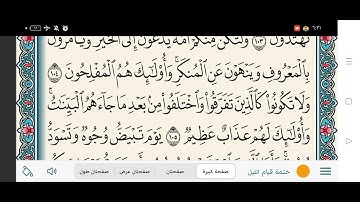 ٦:٢١
تَهْتَدُونَ ١٠٣ وَلْتَكُن مِّنكُمْ أُمَّةٌ يَدْعُونَ إِلَى ٱلْخَيْرِ وَيَأْمُرُونَ
بِٱلْمَعْرُوفِ وَيَنْهَوْنَ عَنِ ٱلْمُنكَرِۚ وَأُوْلَٰٓئِكَ هُمُ ٱلْمُفْلِحُونَ ١٠٤
وَلَا تَكُونُوا۟ كَٱلَّذِينَ تَفَرَّقُوا۟ وَٱخْتَلَفُوا۟ مِنۢ بَعْدِ مَا جَآءَهُمُ ٱلْبَيِّنَٰتُۚ
وَأُوْلَٰٓئِكَ لَهُمْ عَذَابٌ عَظِيمٌ ١٠٥ يَوْمَ تَبْيَضُّ وُجُوهٌ وَتَسْوَدُّ
ختمة قيام الليل صفحة كبيرة صفحتان صفحتان عرض صفحتان طول